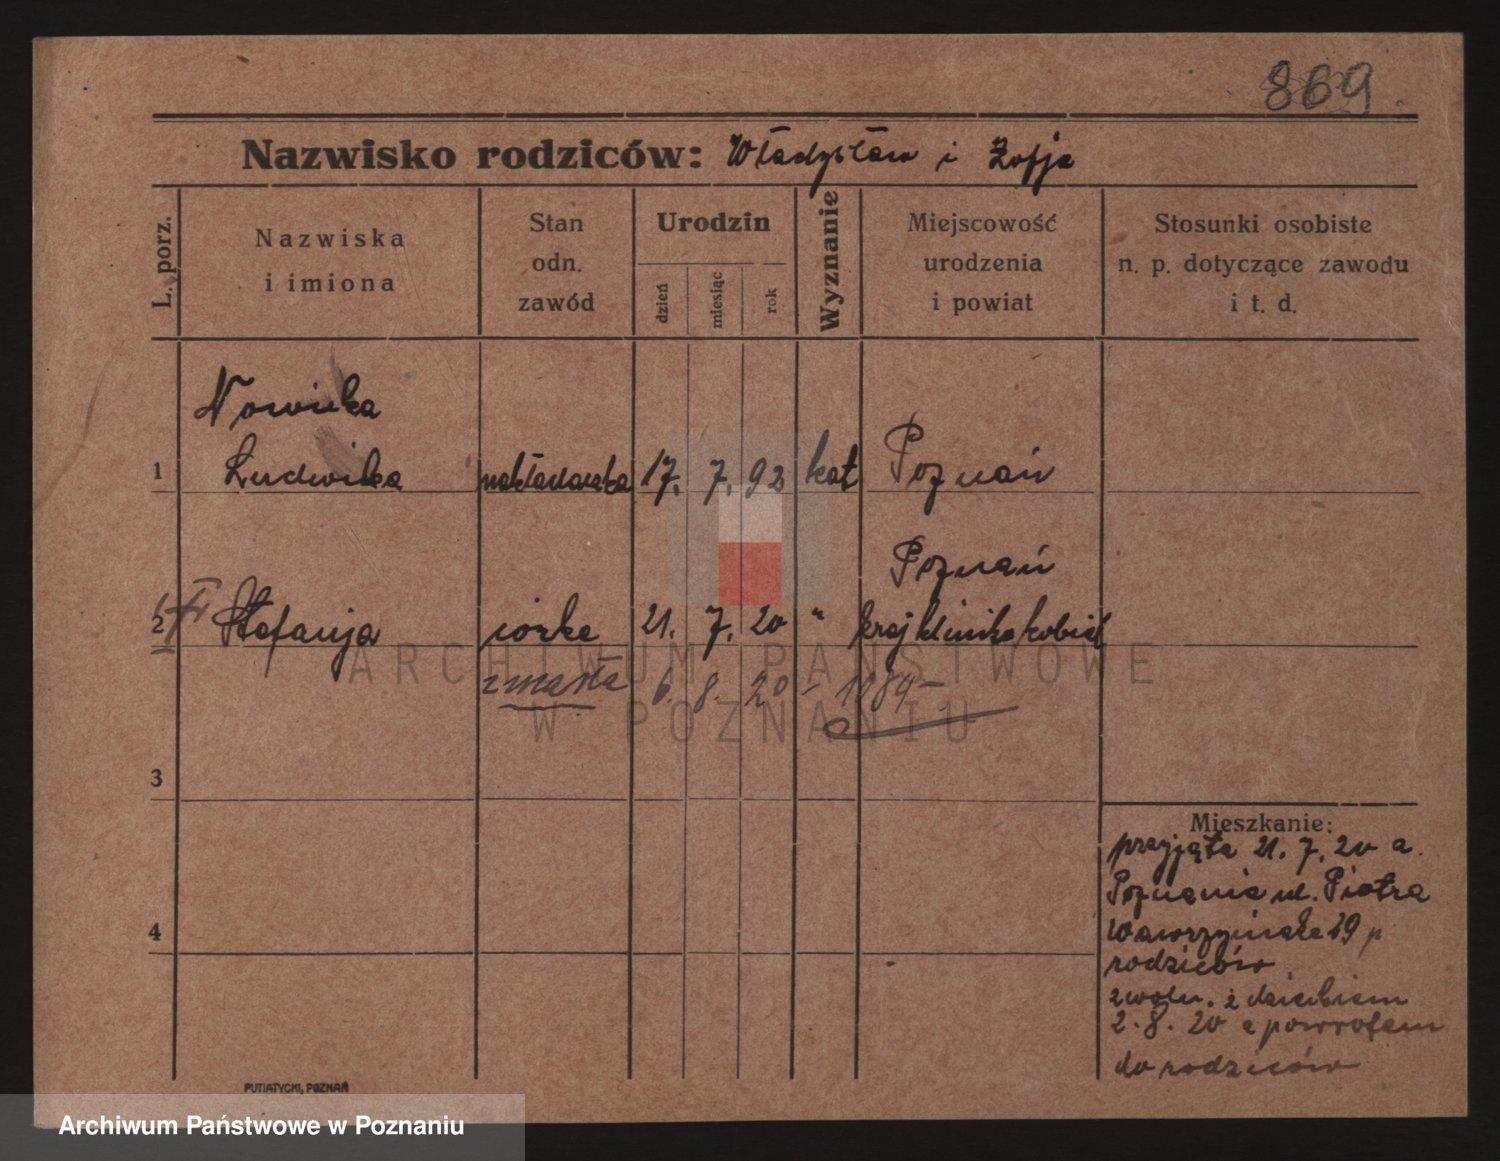 869
Nazwisko rodziców: Władysław i Zofja
L. porz.
Nazwiska
i imiona
Stan
odn.
zawód
Urodzin
dzień
miesiąc
rok
Wyznanie
Miejscowość
urodzenia
i powiat
Stosunki osobiste
n. p. dotyczące zawodu
i t. d.
Nowicka
1 Ludwika nakładaczka 17. 7. 92 kat Poznań
Poznań
2 Stefanja córka 21. 7. 20 " kraj klinika kobiet
zmarła 6. 8. 20 - 1089 -
ARCHIWUM PAŃSTWOWE
W POZNANIU
3
4
Mieszkanie:
przyjęta 21. 7. 20 a.
Poznania ul. Piotra
Wawrzyniaka 19 p
rodziców
zwoln. z dzieckiem
2. 8. 20 z powrotem
do rodziców
PUTIATYCKI, POZNAŃ
Archiwum Państwowe w Poznaniu